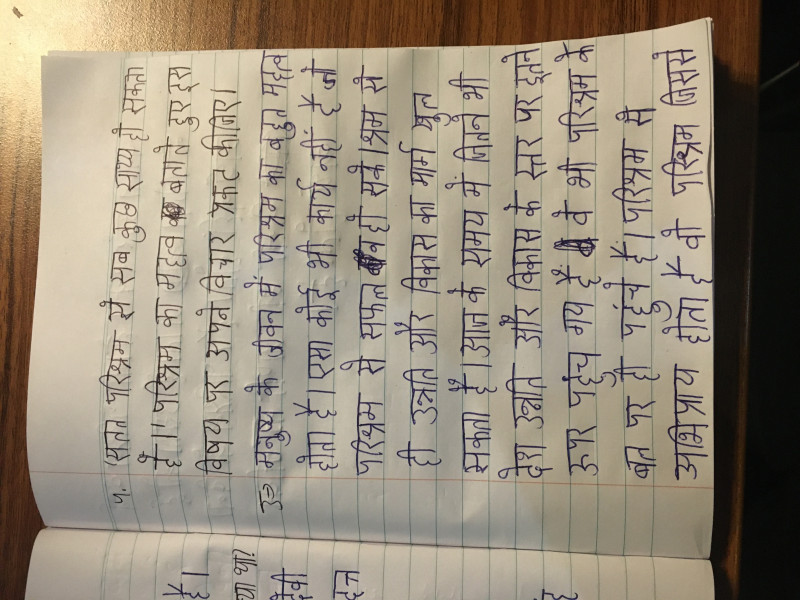 ५. 'सतत परिश्रम से सब कुछ साध्य हो सकता
है।' परिश्रम का महत्व बताते हुए इस
विषय पर अपने विचार प्रकट कीजिए।
उ⇒ मनुष्य के जीवन में परिश्रम का बहुत महत्व
होता है। एसा कोई भी कार्य नहीं है जो
परिश्रम से सफल हो सके। श्रम से
ही उन्नति और विकास का मार्ग खुल
सकता है। आज के समय में जितने भी
देश उन्नति और विकास के स्तर पर इतने
ऊपर पहुंच गय हैं वे भी परिश्रम के
बल पर ही पहुंचे हैं। परिश्रम से
अभिप्राय होता है वो परिश्रम जिससे
है।
था?